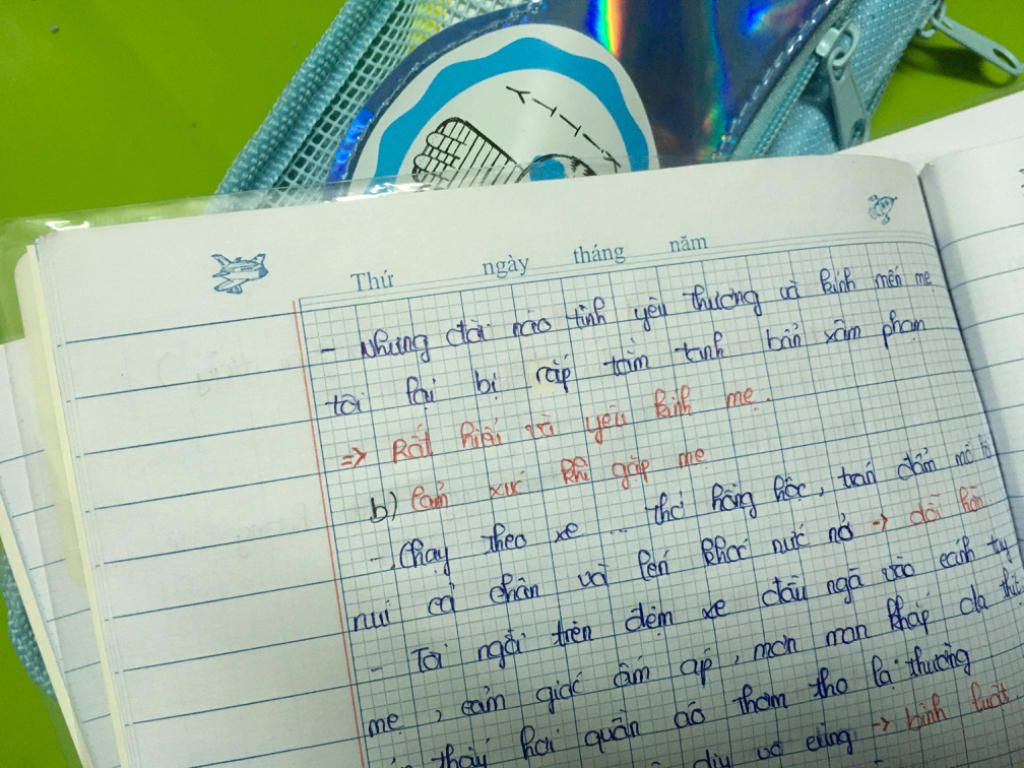 Thứ ngày tháng năm
- Nhưng đời nào tình yêu thương và kính mến mẹ
tôi lại bị rắp tâm tanh bẩn xâm phạm
=> Rất hiểu và yêu kính mẹ.
b) Cảm xúc khi gặp mẹ
- Chạy theo xe ... thở hồng hộc, trán đẫm mồ hôi
ríu cả chân và lên khóc nức nở -> dỗi hờn
- Tôi ngồi trên đệm xe đầu ngã vào cánh tay
mẹ, cảm giác ấm áp, mơn man khắp da thịt
thấy hơi quần áo thơm tho lạ thường
dịu vô cùng -> bình luận